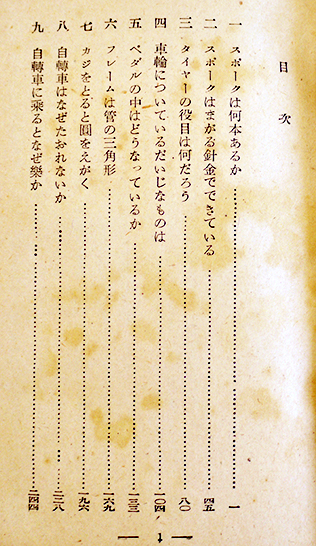 目次
一 スポークは何本あるか 一
二 スポークはまがる針金でできている 四五
三 タイヤーの役目は何だろう 八〇
四 車輪についているだいじなものは 一〇四
五 ペダルの中はどうなっているか 一三三
六 フレームは管の三角形 一六九
七 カジをとると圓をえがく 一九六
八 自轉車はなぜたおれないか 二二八
九 自轉車に乘るとなぜ樂か 二四四
— 1 —